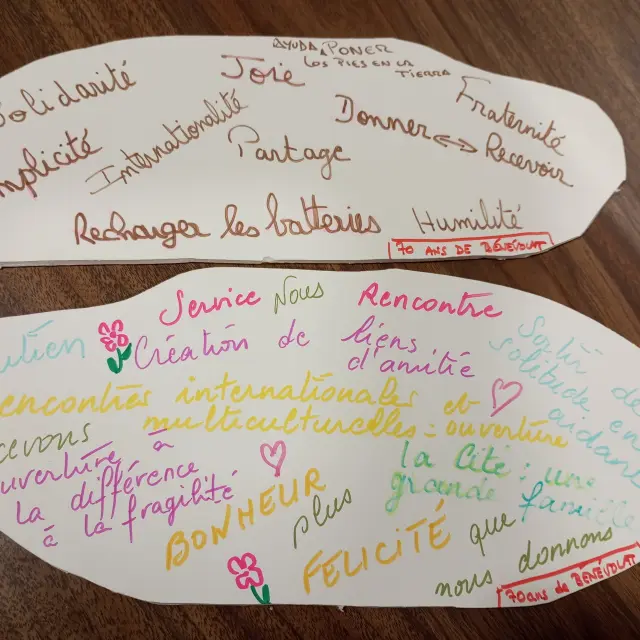 AYUDA, PONER
LOS PIES EN LA
TIERRA
Solidarité
Joie
Fraternité
Internationalité
Donner ↔ Recevoir
Partage
Recharger les batteries
Humilité
70 ANS DE BÉNÉVOLAT
Service
Nous
Rencontre
Création de liens
d'amitié
Sortir de
solitude en
aidant
rencontres internationales et
multiculturelles = ouverture
cevons
uverture à
la différence
à la fragilité
la Cité : une
grande famille
BONHEUR
plus
FELICITÉ
que
nous donnons
70 ans de BÉNÉVOLAT